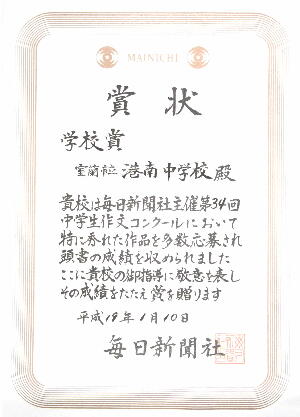 MAINICHI
賞状
学校賞
室蘭市立 港南中学校 殿
貴校は毎日新聞社主催第34回
中学生作文コンクールにおいて
特に秀れた作品を多数応募され
頭書の成績を収められました
ここに貴校の御指導に敬意を表し
その成績をたたえ賞を贈ります
平成19年1月10日
毎日新聞社